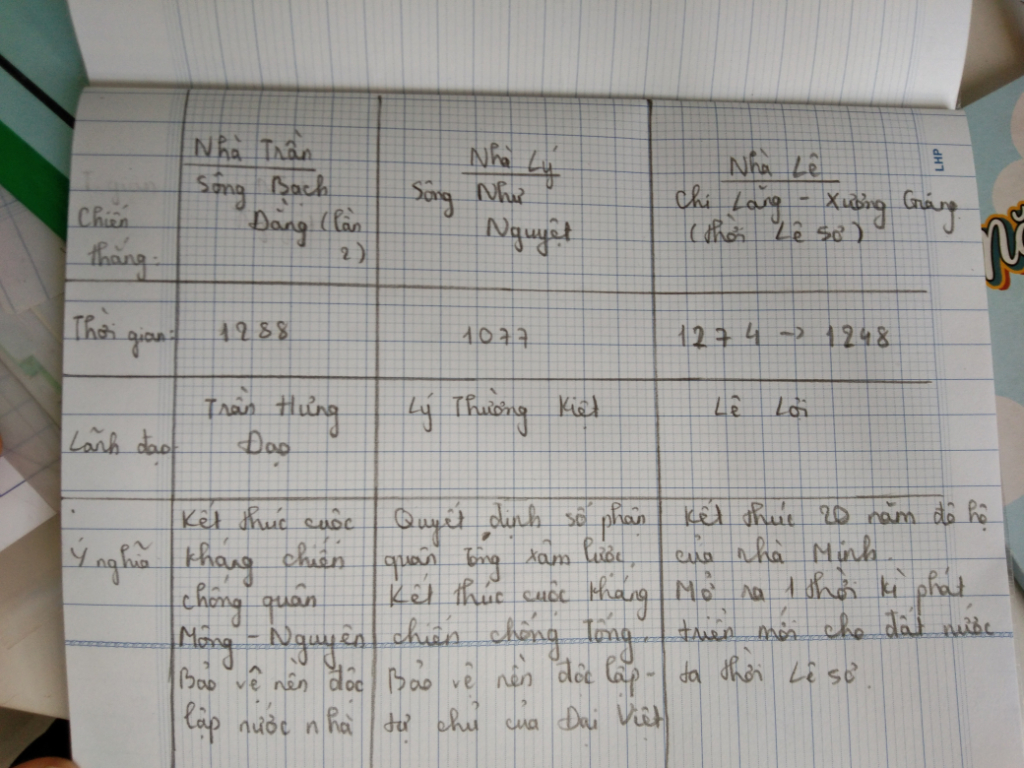 Chiến
thắng:
Nhà Trần
Sông Bạch
Đằng (lần
2)
Nhà Lý
Sông Như
Nguyệt
Nhà Lê
Chi Lăng - Xương Giang
(thời Lê sơ)
LHP
Thời gian:
1288
1077
1274 → 1248
Lãnh đạo
Trần Hưng
Đạo
Lý Thường Kiệt
Lê Lợi
Ý nghĩa
Kết thúc cuộc
kháng chiến
chống quân
Mông - Nguyên
Bảo vệ nền độc
lập nước nhà
Quyết định số phận
quân Tống xâm lược.
Kết thúc cuộc kháng
chiến chống Tống.
Bảo vệ nền độc lập -
tự chủ của Đại Việt
Kết thúc 20 năm đô hộ
của nhà Minh.
Mở ra 1 thời kì phát
triển mới cho đất nước
ta thời Lê sơ.